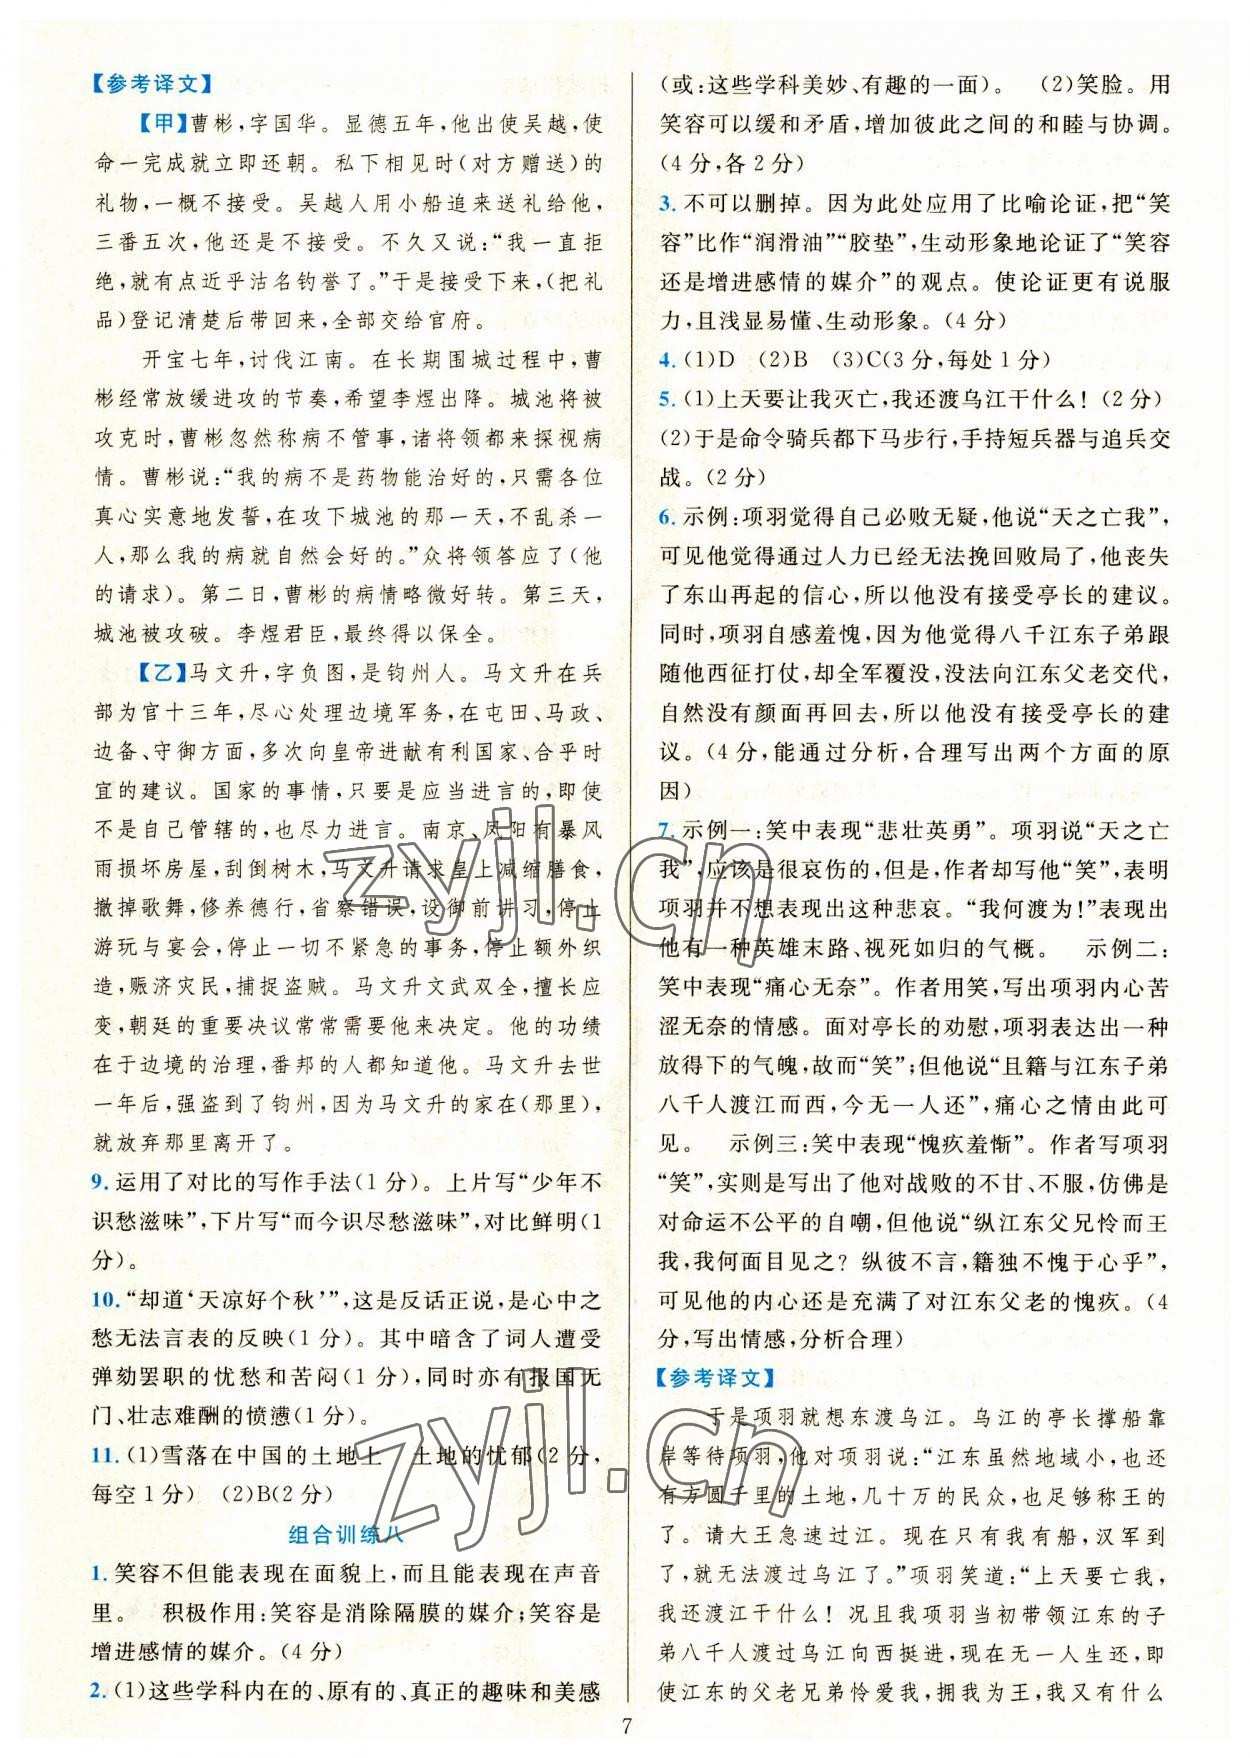 【参考译文】
【甲】曹彬,字国华。显德五年,他出使吴越,使
命一完成就立即还朝。私下相见时(对方赠送)的
礼物,一概不接受。吴越人用小船追来送礼给他,
三番五次,他还是不接受。不久又说:“我一直拒
绝,就有点近乎沽名钓誉了。”于是接受下来,(把礼
品)登记清楚后带回来,全部交给官府。
开宝七年,讨伐江南。在长期围城过程中,曹
彬经常放缓进攻的节奏,希望李煜出降。城池将被
攻克时,曹彬忽然称病不管事,诸将领都来探视病
情。曹彬说:“我的病不是药物能治好的,只需各位
真心实意地发誓,在攻下城池的那一天,不乱杀一
人,那么我的病就自然会好的。”众将领答应了(他
的请求)。第二日,曹彬的病情略微好转。第三天,
城池被攻破。李煜君臣,最终得以保全。
【乙】马文升,字负图,是钧州人。马文升在兵
部为官十三年,尽心处理边境军务,在屯田、马政、
边备、守御方面,多次向皇帝进献有利国家、合乎时
宜的建议。国家的事情,只要是应当进言的,即使
不是自己管辖的,也尽力进言。南京、凤阳有暴风
雨损坏房屋,刮倒树木,马文升请求皇上减缩膳食,
撤掉歌舞,修养德行,省察错误,设御前讲习,停止
游玩与宴会,停止一切不紧急的事务,停止额外织
造,赈济灾民,捕捉盗贼。马文升文武双全,擅长应
变,朝廷的重要决议常常需要他来决定。他的功绩
在于边境的治理,番邦的人都知道他。马文升去世
一年后,强盗到了钧州,因为马文升的家在(那里),
就放弃那里离开了。
9. 运用了对比的写作手法(1分)。上片写“少年不
识愁滋味”,下片写“而今识尽愁滋味”,对比鲜明(1
分)。
10. “却道‘天凉好个秋’”,这是反话正说,是心中之
愁无法言表的反映(1分)。其中暗含了词人遭受
弹劾罢职的忧愁和苦闷(1分),同时亦有报国无
门、壮志难酬的愤懑(1分)。
11. (1)雪落在中国的土地上 土地的忧郁(2分,
每空1分) (2)B(2分)
组合训练八
1. 笑容不但能表现在面貌上,而且能表现在声音
里。 积极作用:笑容是消除隔膜的媒介;笑容是
增进感情的媒介。(4分)
2. (1)这些学科内在的、原有的、真正的趣味和美感
(或:这些学科美妙、有趣的一面)。 (2)笑脸。用
笑容可以缓和矛盾,增加彼此之间的和睦与协调。
(4分,各2分)
3. 不可以删掉。因为此处应用了比喻论证,把“笑
容”比作“润滑油”“胶垫”,生动形象地论证了“笑容
还是增进感情的媒介”的观点。使论证更有说服
力,且浅显易懂、生动形象。(4分)
4. (1)D (2)B (3)C(3分,每处1分)
5. (1)上天要让我灭亡,我还渡乌江干什么!(2分)
(2)于是命令骑兵都下马步行,手持短兵器与追兵交
战。(2分)
6. 示例:项羽觉得自己必败无疑,他说“天之亡我”,
可见他觉得通过人力已经无法挽回败局了,他丧失
了东山再起的信心,所以他没有接受亭长的建议。
同时,项羽自感羞愧,因为他觉得八千江东子弟跟
随他西征打仗,却全军覆没,没法向江东父老交代,
自然没有颜面再回去,所以他没有接受亭长的建
议。(4分,能通过分析,合理写出两个方面的原
因)
7. 示例一:笑中表现“悲壮英勇”。项羽说“天之亡
我”,应该是很哀伤的,但是,作者却写他“笑”,表明
项羽并不想表现出这种悲哀。“我何渡为!”表现出
他有一种英雄末路、视死如归的气概。 示例二:
笑中表现“痛心无奈”。作者用笑,写出项羽内心苦
涩无奈的情感。面对亭长的劝慰,项羽表达出一种
放得下的气魄,故而“笑”;但他说“且籍与江东子弟
八千人渡江而西,今无一人还”,痛心之情由此可
见。 示例三:笑中表现“愧疚羞惭”。作者写项羽
“笑”,实则是写出了他对战败的不甘、不服,仿佛是
对命运不公平的自嘲,但他说“纵江东父兄怜而王
我,我何面目见之?纵彼不言,籍独不愧于心乎”,
可见他的内心还是充满了对江东父老的愧疚。(4
分,写出情感,分析合理)
【参考译文】
于是项羽就想东渡乌江。乌江的亭长撑船靠
岸等待项羽,他对项羽说:“江东虽然地域小,也还
有方圆千里的土地,几十万的民众,也足够称王的
了。请大王急速过江。现在只有我有船,汉军到
了,就无法渡过乌江了。”项羽笑道:“上天要亡我,
我还渡江干什么!况且我项羽当初带领江东的子
弟八千人渡过乌江向西挺进,现在无一人生还,即
使江东的父老兄弟怜爱我,拥我为王,我又有什么
7
zyjl.cn
zyjl.cn